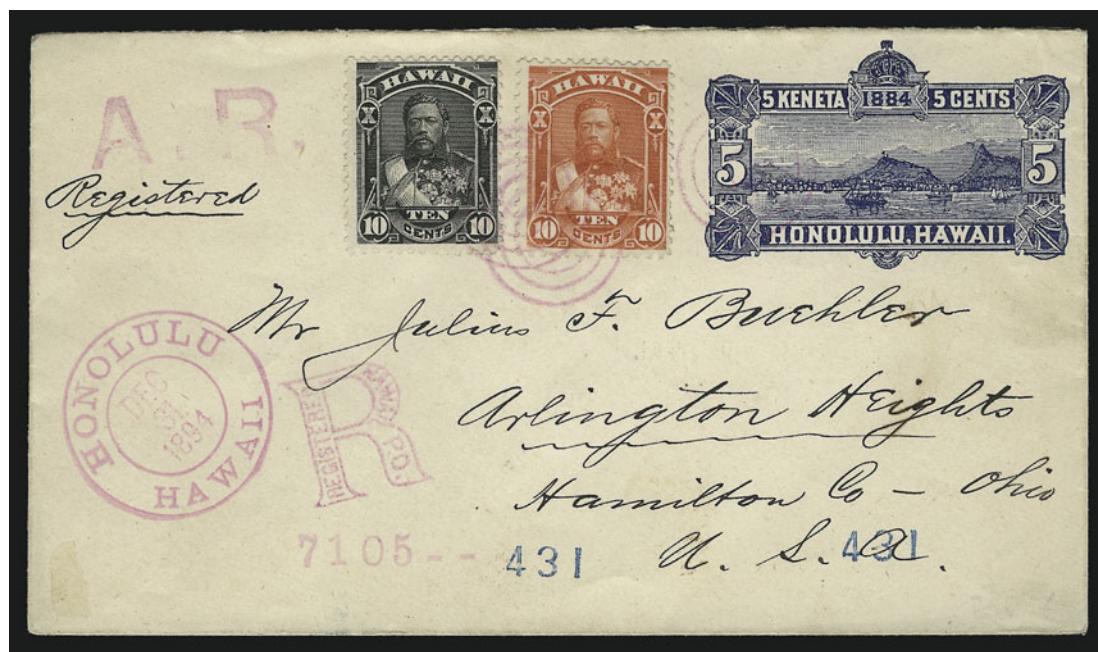 A. R.
Registered
HAWAII
X X
10 TEN CENTS 10
HAWAII
X X
10 TEN CENTS 10
5 KENETA 1884 5 CENTS
5 5
HONOLULU, HAWAII.
Mr Julius F. Buehler
Arlington Heights
Hamilton Co – Ohio
U. S. A.
HONOLULU
DEC
1894
HAWAII
REGISTERED
R
HAWAII P.O.
7105--
431
431